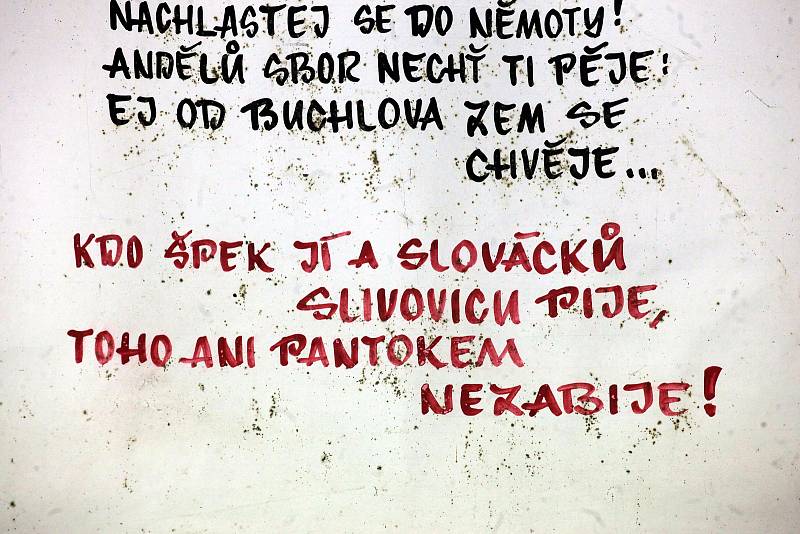 NACHLASTEJ SE DO NĚMOTY!
ANDĚLŮ SBOR NECHŤ TI PĚJE:
EJ OD BUCHLOVA ZEM SE
CHVĚJE...
KDO ŠPEK JÍ A SLOVÁCKŮ
SLIVOVICU PIJE,
TOHO ANI PANTOKEM
NEZABIJE!